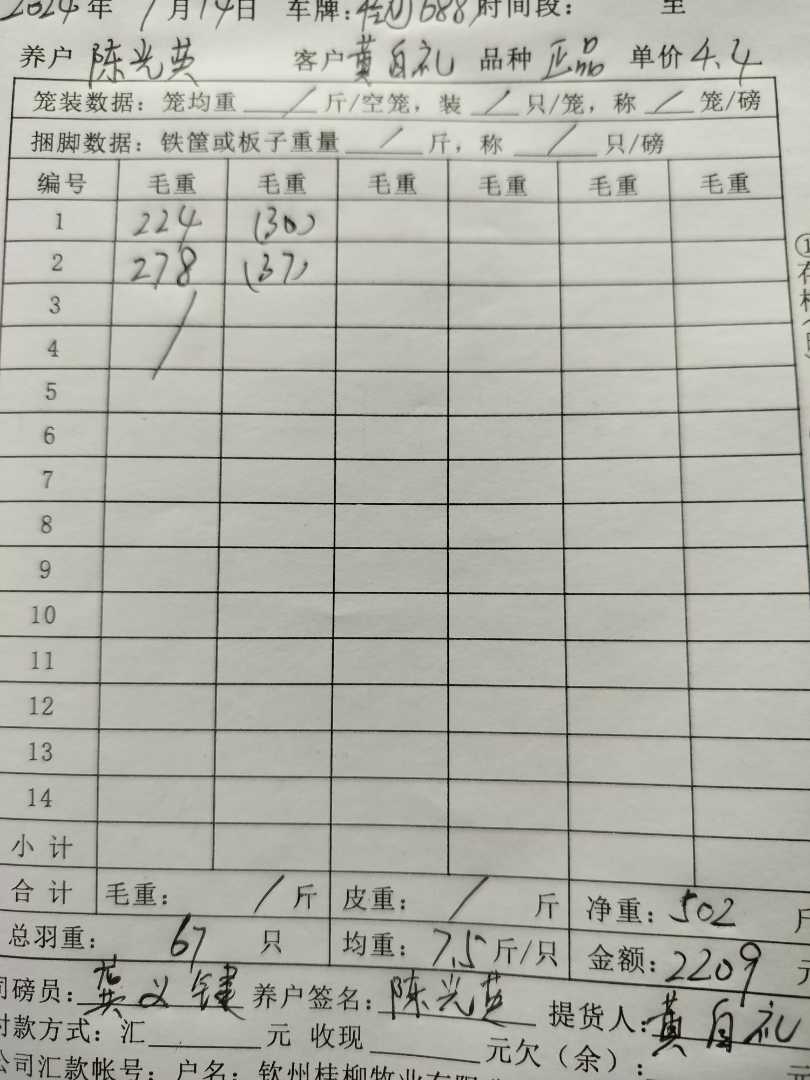 2024年 1月14日 车牌: 688 时间段: 至
养户 陈光英 客户 黄自礼 品种 正品 单价 4.4
笼装数据: 笼均重 / 斤/空笼, 装 / 只/笼, 称 / 笼/磅
捆脚数据: 铁筐或板子重量 / 斤, 称 / 只/磅
编号 毛重 毛重 毛重 毛重 毛重 毛重
1 224 (30)
2 278 (37)
3 /
4
5
6
7
8
9
10
11
12
13
14
小计
合计 毛重: / 斤 皮重: / 斤 净重: 502 斤
总羽重: 67 只 均重: 7.5 斤/只 金额: 2209 元
司磅员: 黄义健 养户签名: 陈光英 提货人: 黄自礼
付款方式: 汇 元 收现 元欠(余): 元
公司汇款帐号: 户名: 钦州桂柳牧业有限